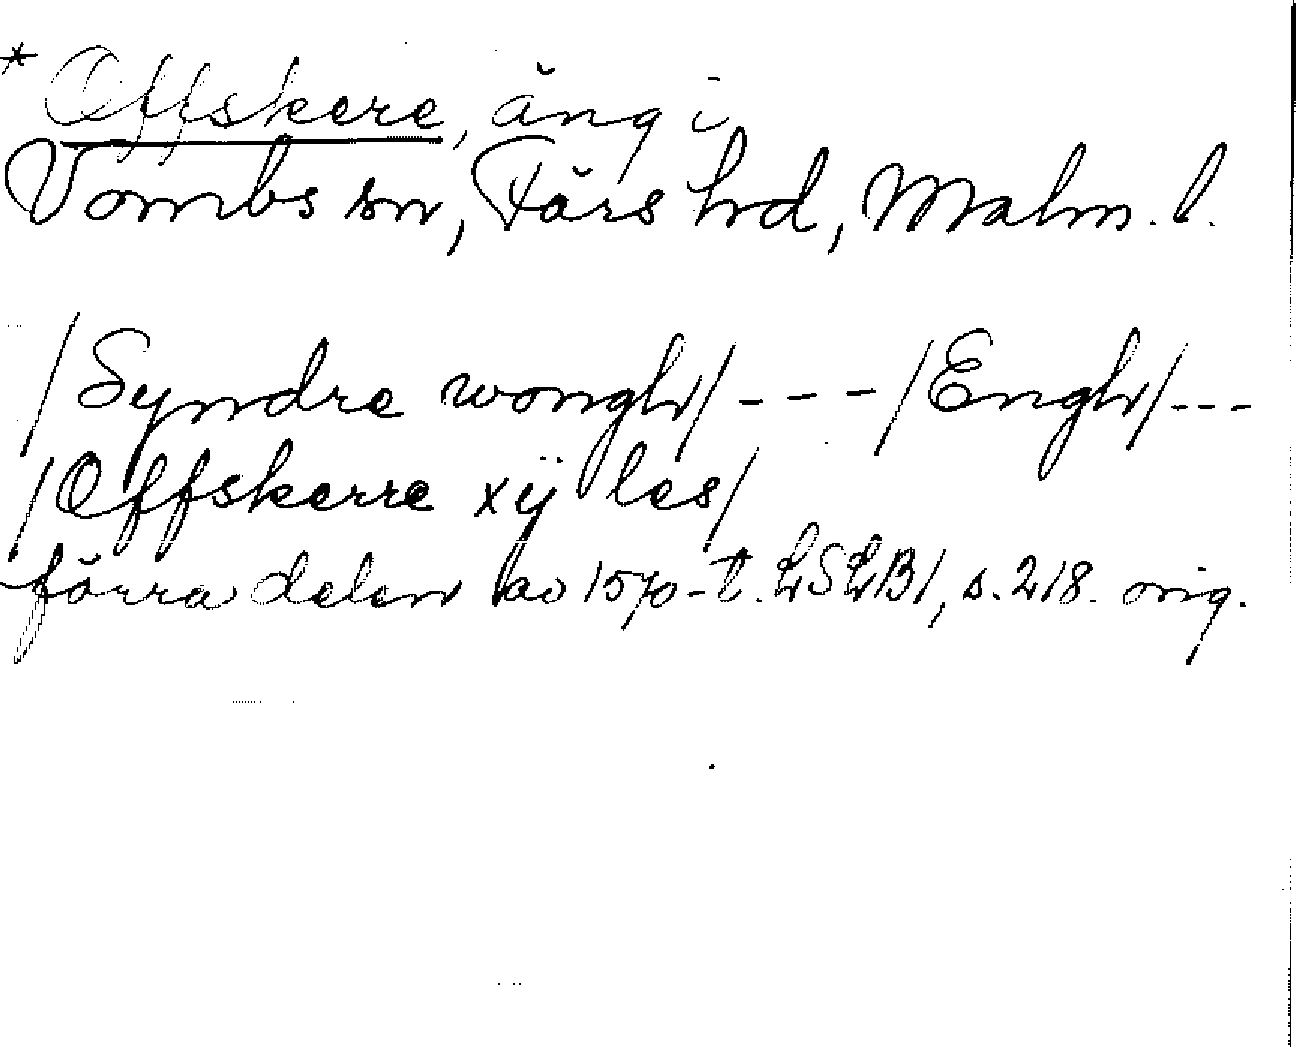 * Offskere, äng i
Vombs sn, Färs hd, Malm. l.
/Syndre wongh/ - - - /Engh/ - - -
/Offskerre xij les/
förra delen av 1570-t. LSLB1, s. 218. orig.